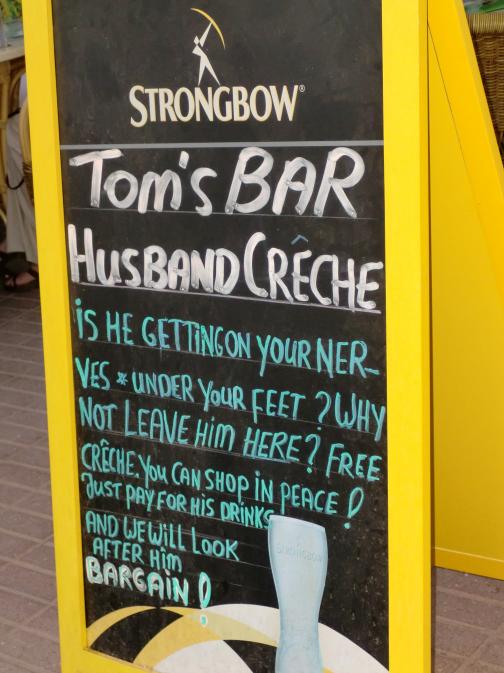 STRONGBOW®
TOM'S BAR
HUSBAND CRÊCHE
IS HE GETTING ON YOUR NER-
VES * UNDER YOUR FEET ? WHY
NOT LEAVE HIM HERE? FREE
CRÊCHE. YOU CAN SHOP IN PEACE !
JUST PAY FOR HIS DRINKS
AND WE WILL LOOK
AFTER HIM
BARGAIN !
STRONGBOW